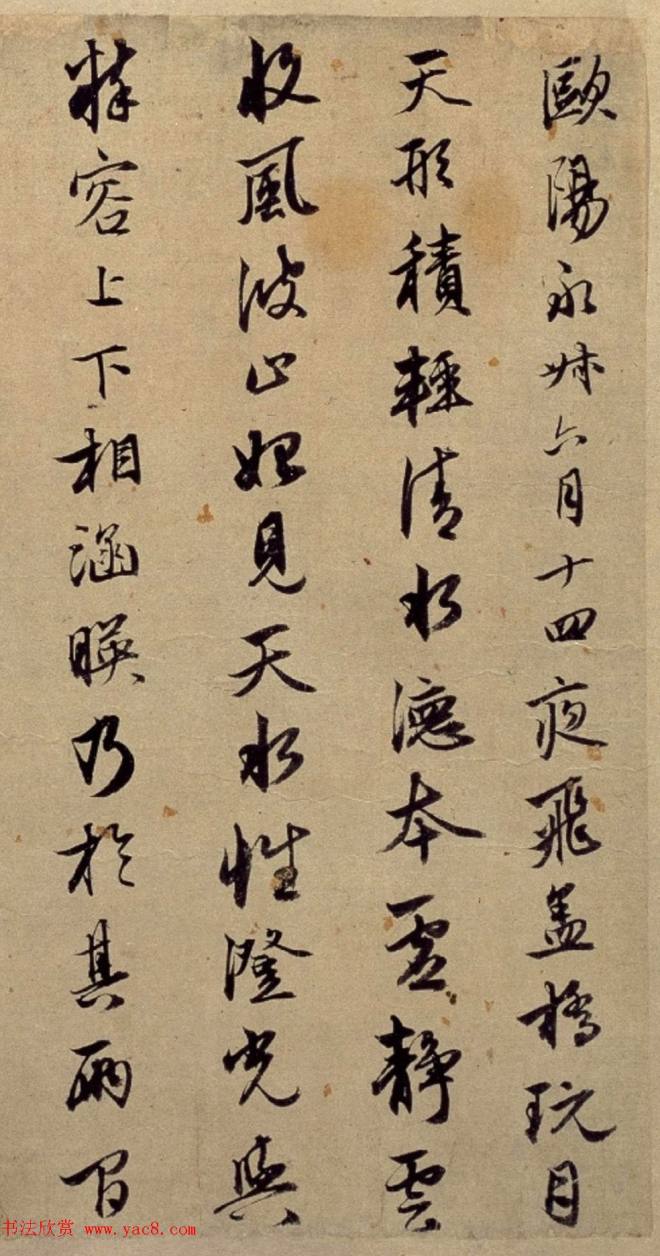 歐陽永叔六月十四夜飛蓋橋玩月
天形積輕清水德本虛靜雲
收風波止始見天水性澄光與
粹容上下相涵暎乃於其兩間
书法欣赏 www.yac8.com